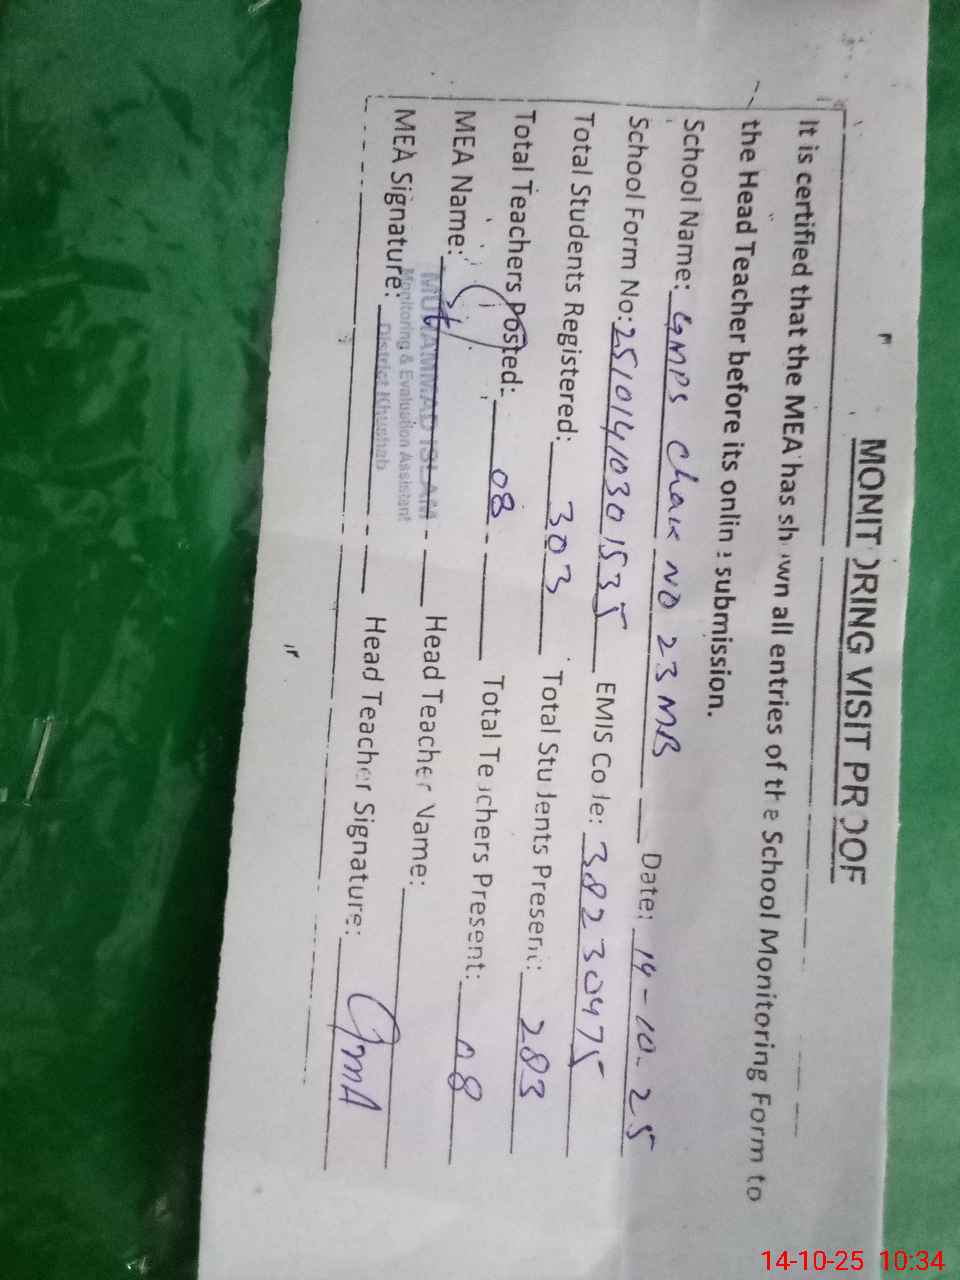 MONITORING VISIT PROOF
It is certified that the MEA has shown all entries of the School Monitoring Form to
the Head Teacher before its online submission.
School Name: GMPS Chak No 23 MB Date: 14-10-25
School Form No: 2510141030 1535 EMIS Code: 38230475
Total Students Registered: 303 Total Students Present: 283
Total Teachers Posted: 08 Total Teachers Present: 08
MEA Name: MUHAMMAD ISLAM Head Teacher Name:
Monitoring & Evaluation Assistant
District Khushab
MEA Signature: Head Teacher Signature:
14-10-25 10:34